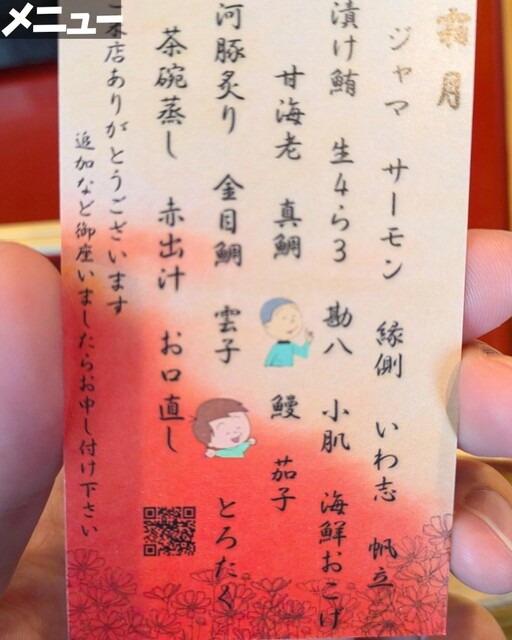 メニュー
霜月
ジャマ サーモン 縁側 いわ志 帆立
漬け鮪 生4ら3 勘八 小肌 海鮮おこげ
甘海老 真鯛 鰻 茄子
河豚炙り 金目鯛 雲子 とろたく
茶碗蒸し 赤出汁 お口直し
ご来店ありがとうございます
追加など御座いましたらお申し付け下さい